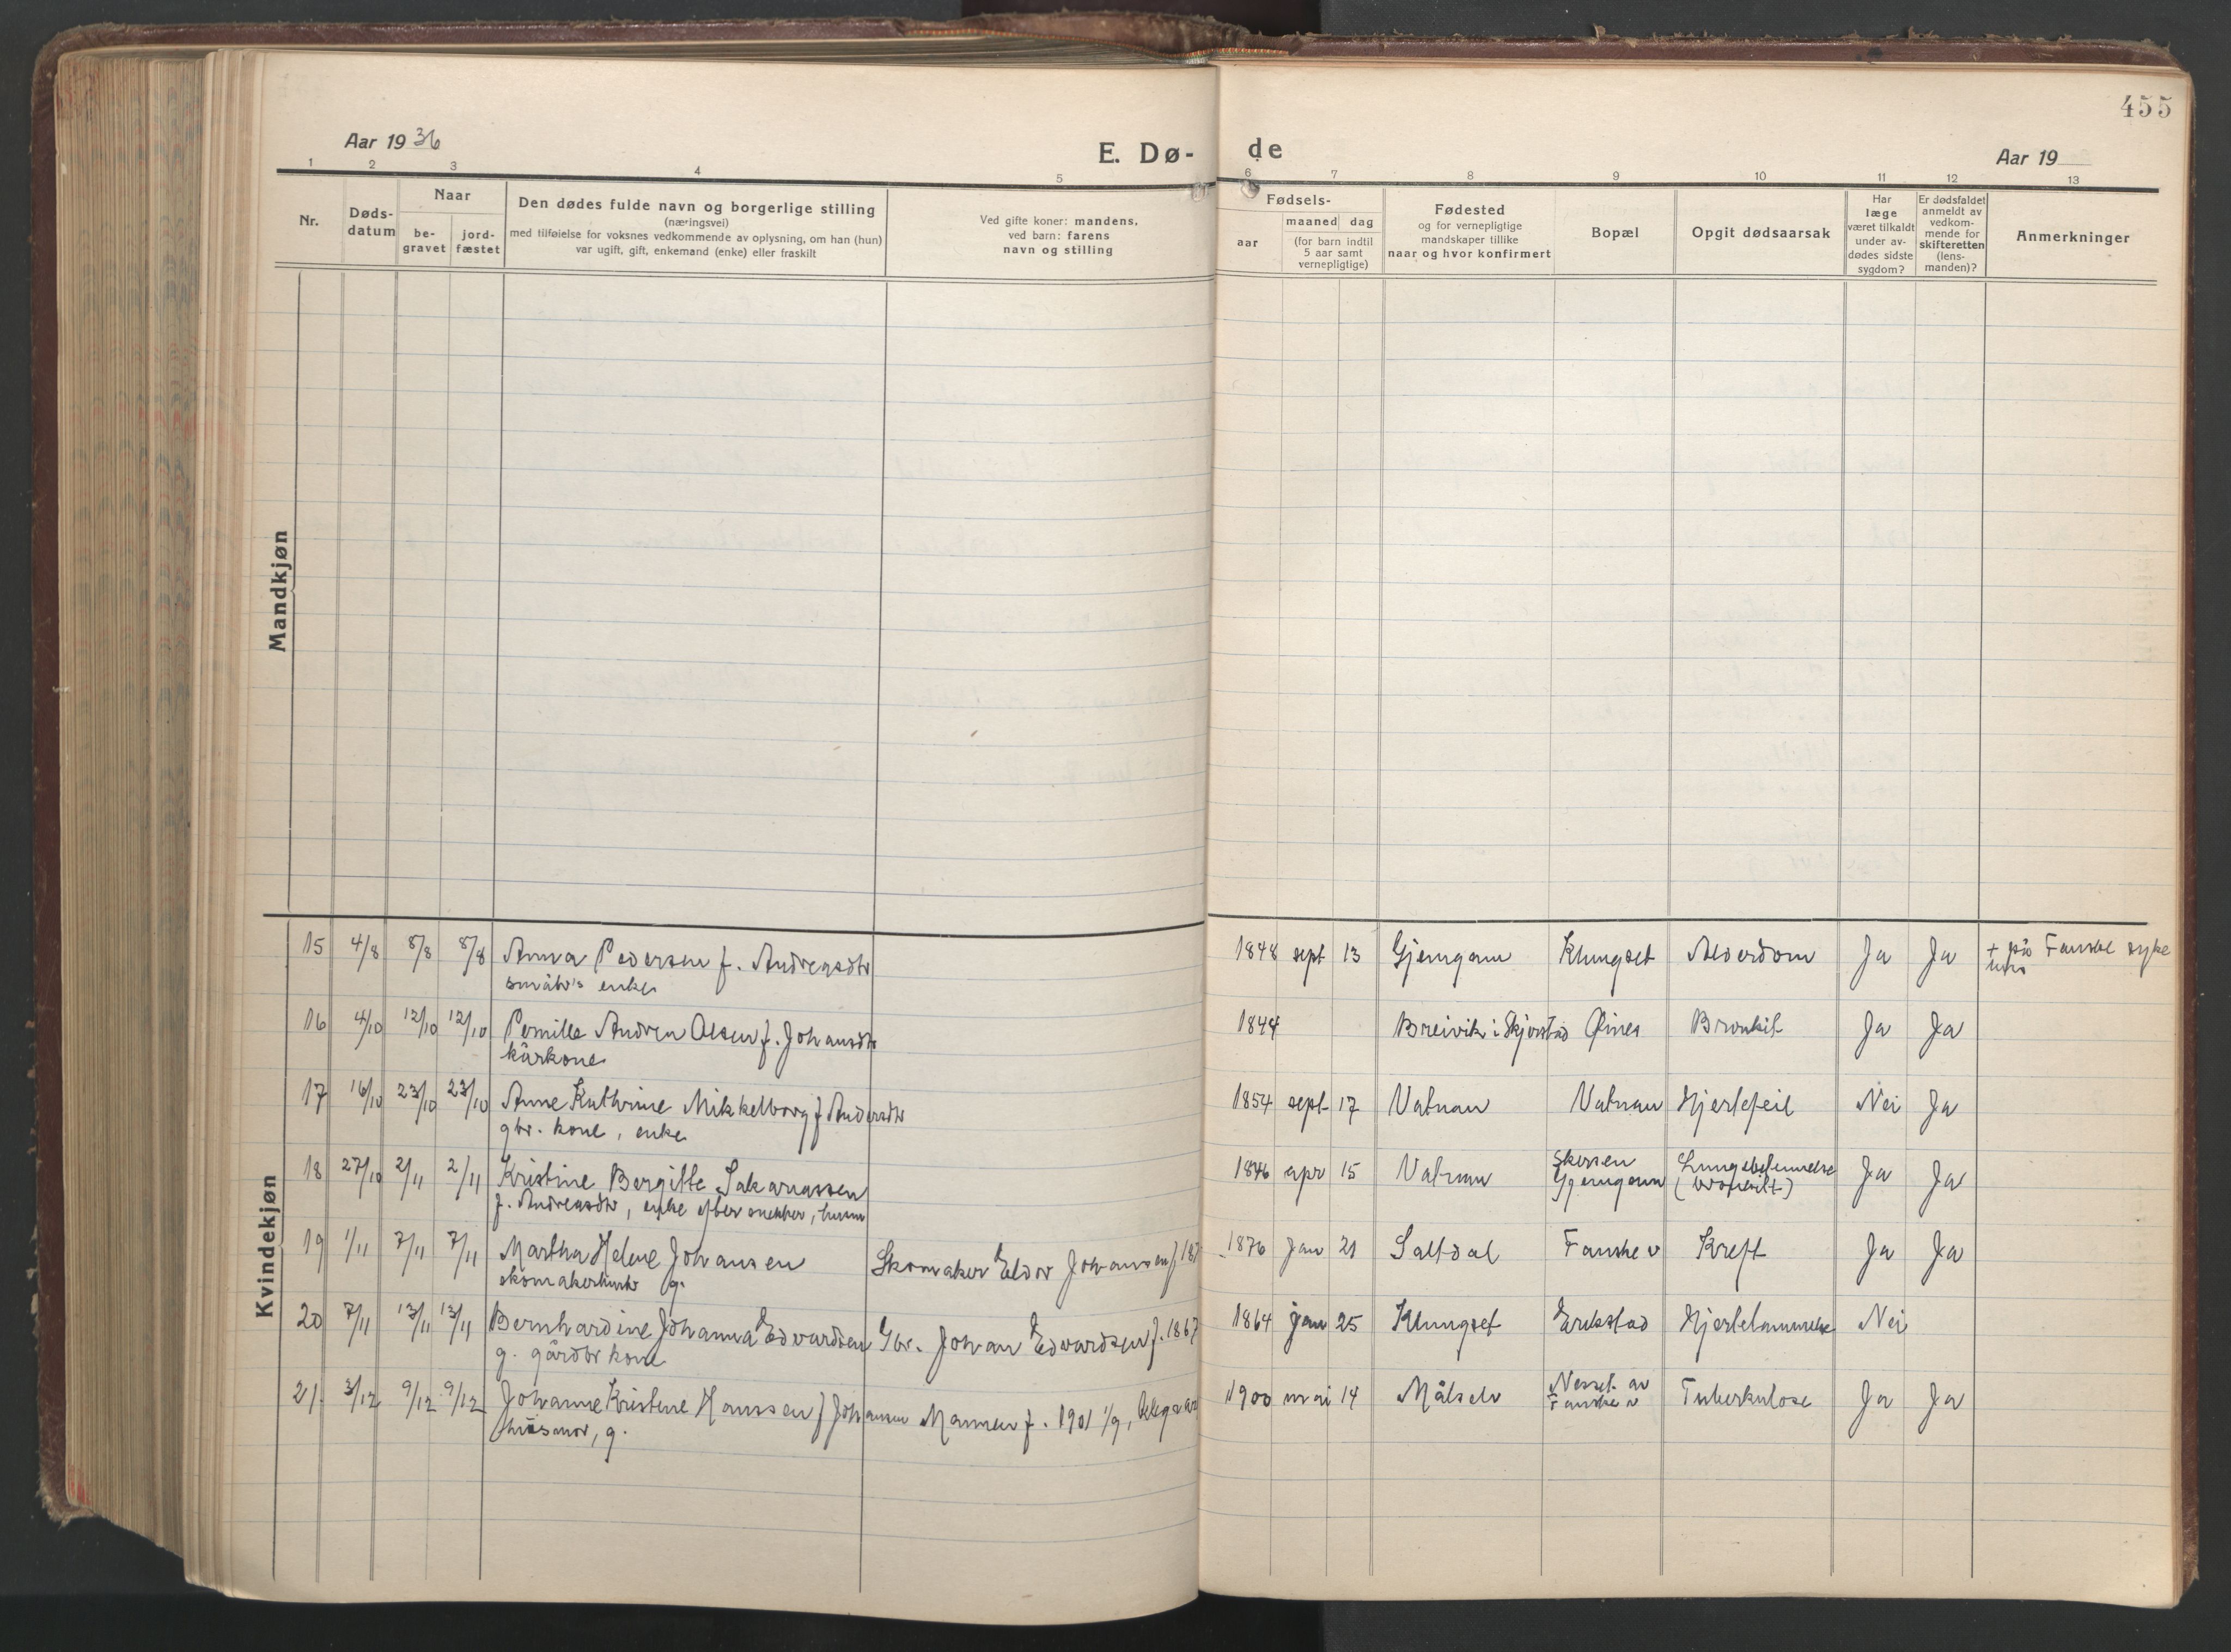 455
Aar 1936
E. Dø-
de
Aar 19
1 2 3 4 5 6 7 8 9 10 11 12 13
Nr.
Døds-
datum
Naar
be-
gravet
jord-
fæstet
Den dødes fulde navn og borgerlige stilling
(næringsvei)
med tilføielse for voksnes vedkommende av oplysning, om han (hun)
var ugift, gift, enkemand (enke) eller fraskilt
Ved gifte koner: mandens,
ved barn: farens
navn og stilling
Fødsels-
aar
maaned dag
(for barn indtil
5 aar samt
vernepligtige)
Fødested
og for vernepligtige
mandskaper tillike
naar og hvor konfirmert
Bopæl
Opgit dødsaarsak
Har
læge
været tilkaldt
under av-
dødes sidste
sygdom?
Er dødsfaldet
anmeldt av
vedkom-
mende for
skifteretten
(lens-
manden)?
Anmerkninger
Mandkjøn
Kvindekjøn
15 4/8 8/8 8/8 Anna Pedersen f. Andreasdtr 1848 sept 13 Gjemgam Klungset Alderdom Ja Ja + på Fauske syke
småbr's enke hus
16 4/10 12/10 12/10 Pernille Andrea Olsen f. Johansdtr 1844 Breivik i Skjerstad Øines Bronkit Ja Ja
kårkone
17 16/10 23/10 23/10 Anne Kathrine Mikkelborg f Andersdtr 1854 sept 17 Vatnan Vatnan Hjertefeil Nei Ja
gbr. kone, enke
18 27/10 2/11 2/11 Kristine Bergitte Sakariassen 1846 apr 15 Vatnan Skyssen Lungebetennelse Ja Ja
f. Andreasdtr, enke efter snekker, Gjemgam
19 1/11 7/11 7/11 Martha Helene Johansen Skomaker Eldor Johansen f 187 1876 jan 21 Saltdal Fauske v Kreft Ja Ja
g.
20 7/11 13/11 13/11 Bernhardine Johanna Edvardsen Gbr. Johan Edvardsen f. 1867 1864 jan 25 Klungset Erikstad Hjertelammelse Nei
g. gårdbr kone
21. 3/12 9/12 9/12 Johanne Kristine Hanssen f Johansen Mannen f. 1901 1/9, 1900 mai 14 Målselv Nesset av Tuberkulose Ja Ja
husmor, g. Fauske v